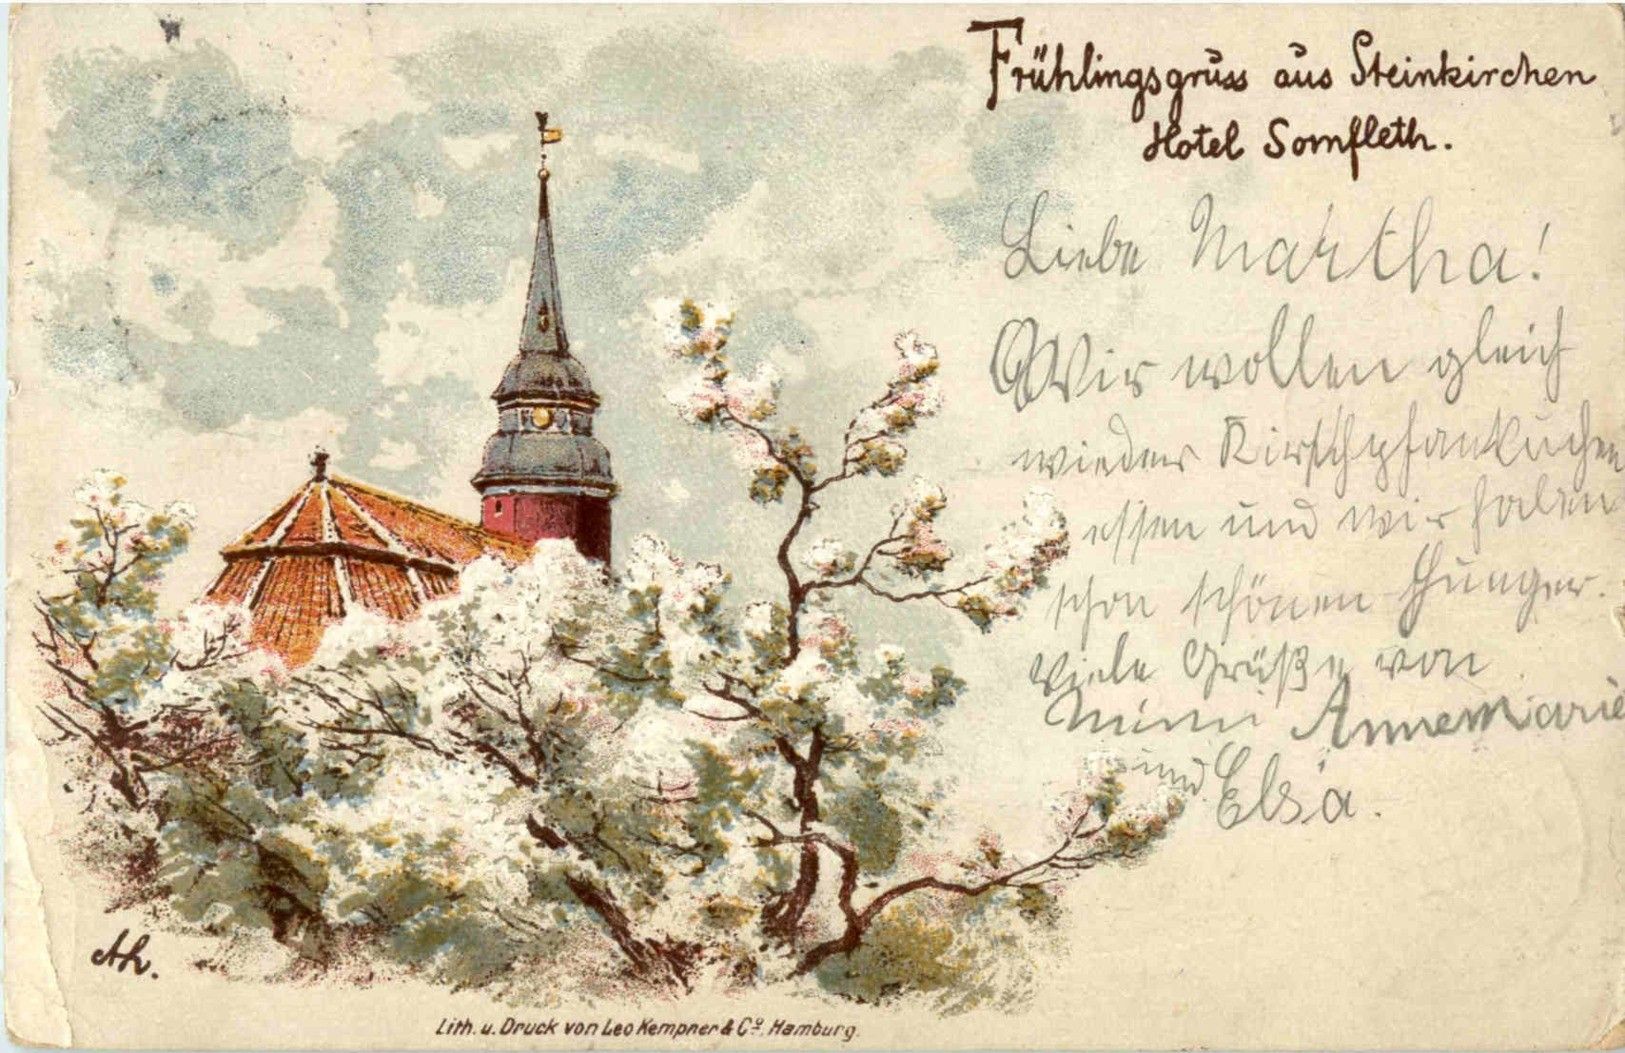 Frühlingsgruss aus Steinkirchen
Hotel Somfleth.
Liebe Martha!
Wir wollen gleich
wieder Kirschpfankuchen
essen und wir haben
schon schönen Hunger.
Viele Grüße von
Mimi Annemarie
und Elsa.
Ah.
Lith. u. Druck von Leo Kempner & Co. Hamburg.